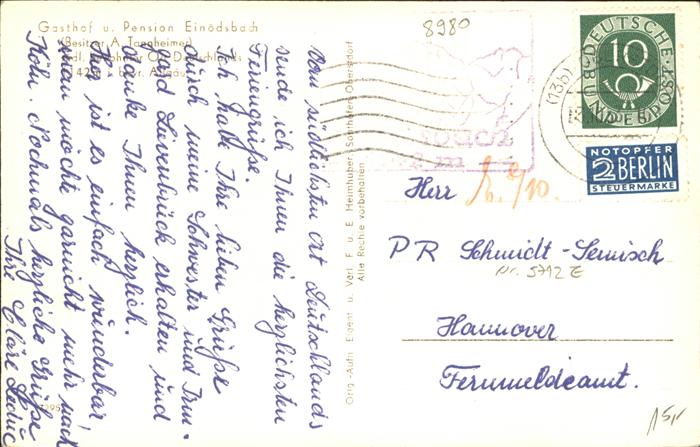 Gasthof u. Pension Einödsbach
(Besitzer A. Tannheimer)
südl. bewohnter Ort Deutschlands
1142 m - bayr. Allgäu
8980
Vom südlichsten Ort Deutschlands
sende ich Ihnen die herzlichsten
Feriengrüße.
Ich habe Ihre lieben Grüße
durch meine Schwester und Irm-
gard Lüvenbrück erhalten und
danke Ihnen herzlich.
Hier ist es einfach wunderbar,
man möchte garnicht mehr nach
Köln. Nochmals herzliche Grüße
Ihre Cläre Leduc
Orig.-Aufn. Eigent. u. Verl. F. u. E. Heimhuber, Sonthofen, Oberstdorf
Alle Rechte vorbehalten
DEUTSCHE
BUNDESPOST
10
(13b)
NOTOPFER
2 BERLIN
STEUERMARKE
Herr
PR Schmidt-Semisch
Nr. 5792 E
Hannover
Fernmeldeamt.
15,-